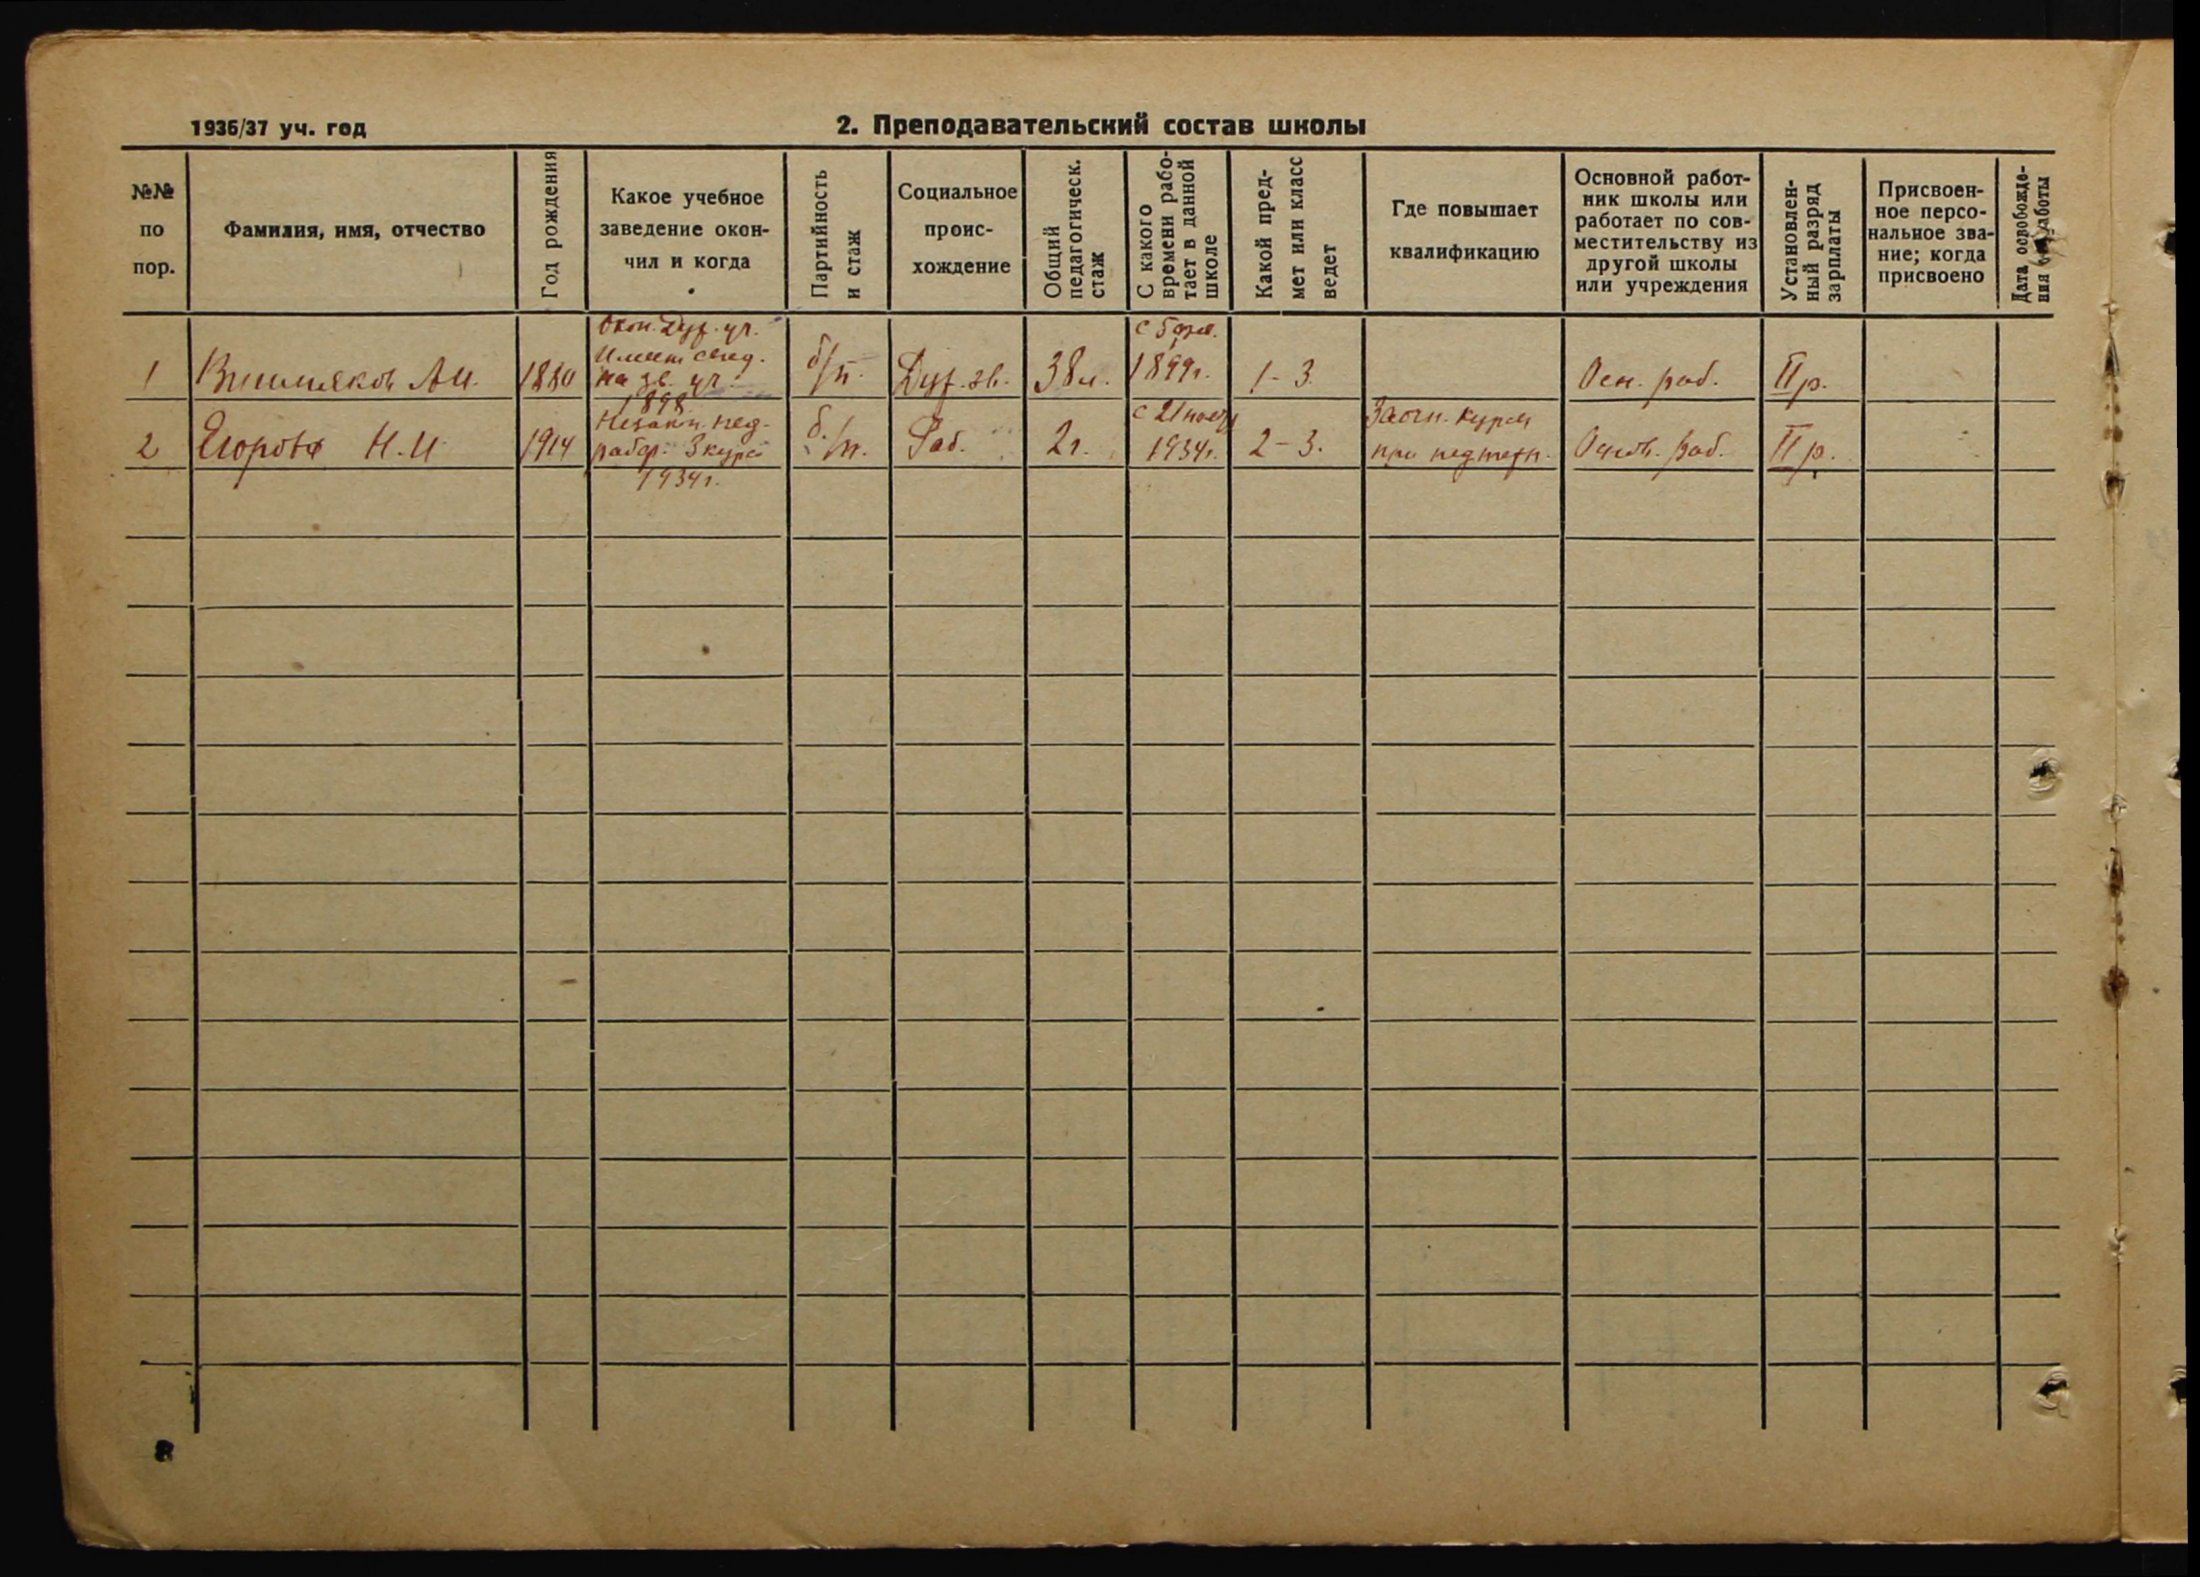 1936/37 уч. год
2. Преподавательский состав школы
№№
по
пор.
Фамилия, имя, отчество
Год рождения
Какое учебное
заведение окон-
чил и когда
Партийность
и стаж
Социальное
проис-
хождение
Общий
педагогическ.
стаж
С какого
времени рабо-
тает в данной
школе
Какой пред-
мет или класс
ведет
Где повышает
квалификацию
Основной работ-
ник школы или
работает по сов-
местительству из
другой школы
или учреждения
Установлен-
ный разряд
зарплаты
Присвоен-
ное персо-
нальное зва-
ние; когда
присвоено
Дата освобожде-
ния от работы
1
А.И.
1880
Окон. Дух. уч.
Имеет свид.
на зв. уч.
1898
б/п.
Дух. зв.
38 л.
с 5
1899г.
1-3.
Осн. раб.
II р.
2
Егорова Н.И
1914
Незакон. пед.
рабф. 3 курса
1934г.
б./п.
Раб.
2г.
с 21
1934г.
2-3.
Заочн. курсы
при педтехн.
раб.
II р.
8